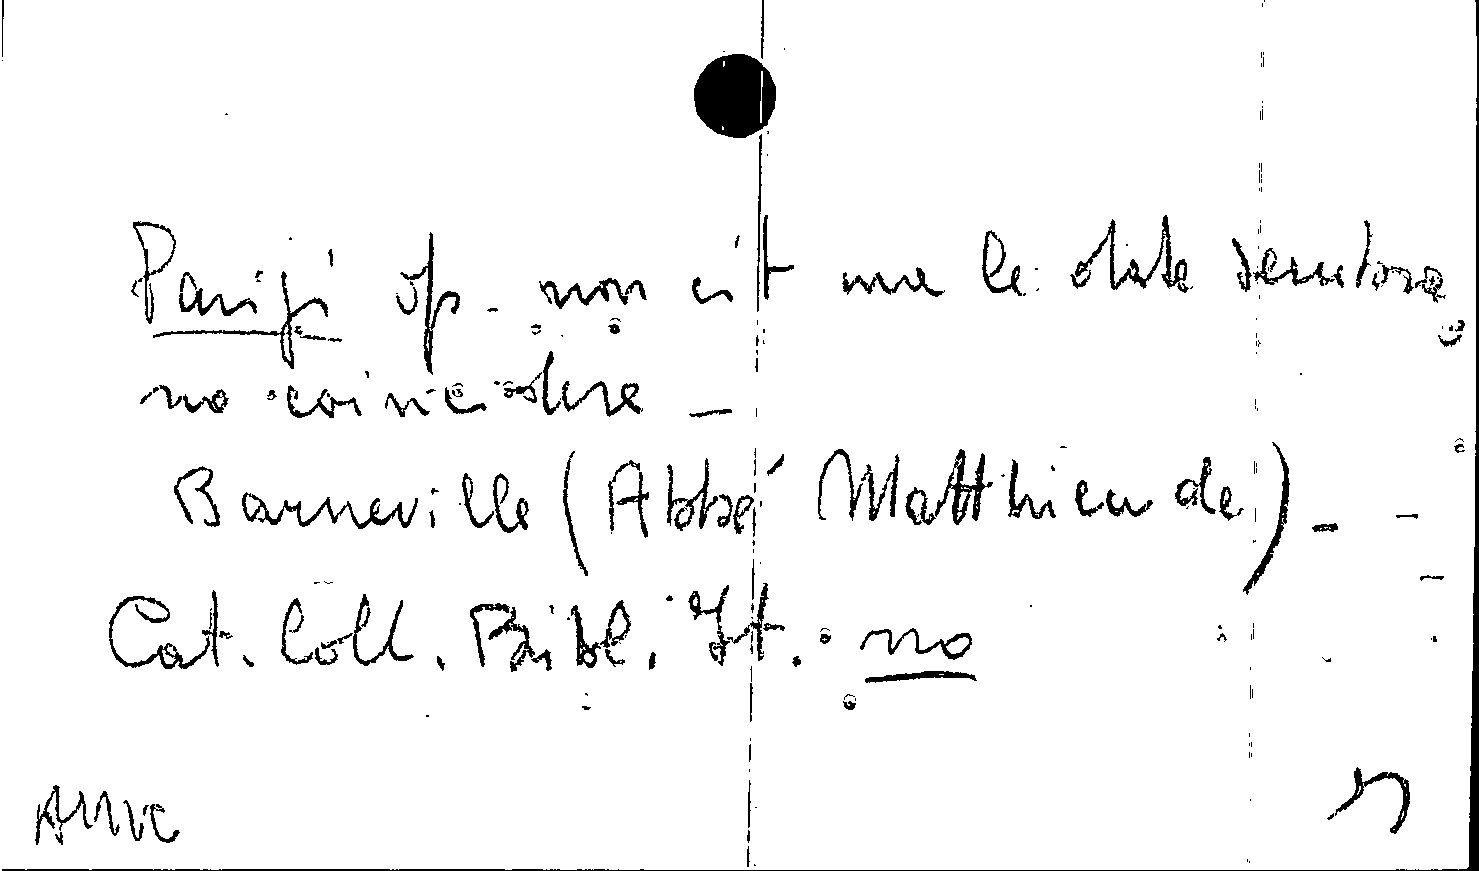 Parigi op. non c'è ma le date sembra
no coincidere —
Barneville (Abbé Matthieu de) -
Cat. Coll. Bibl. It. no